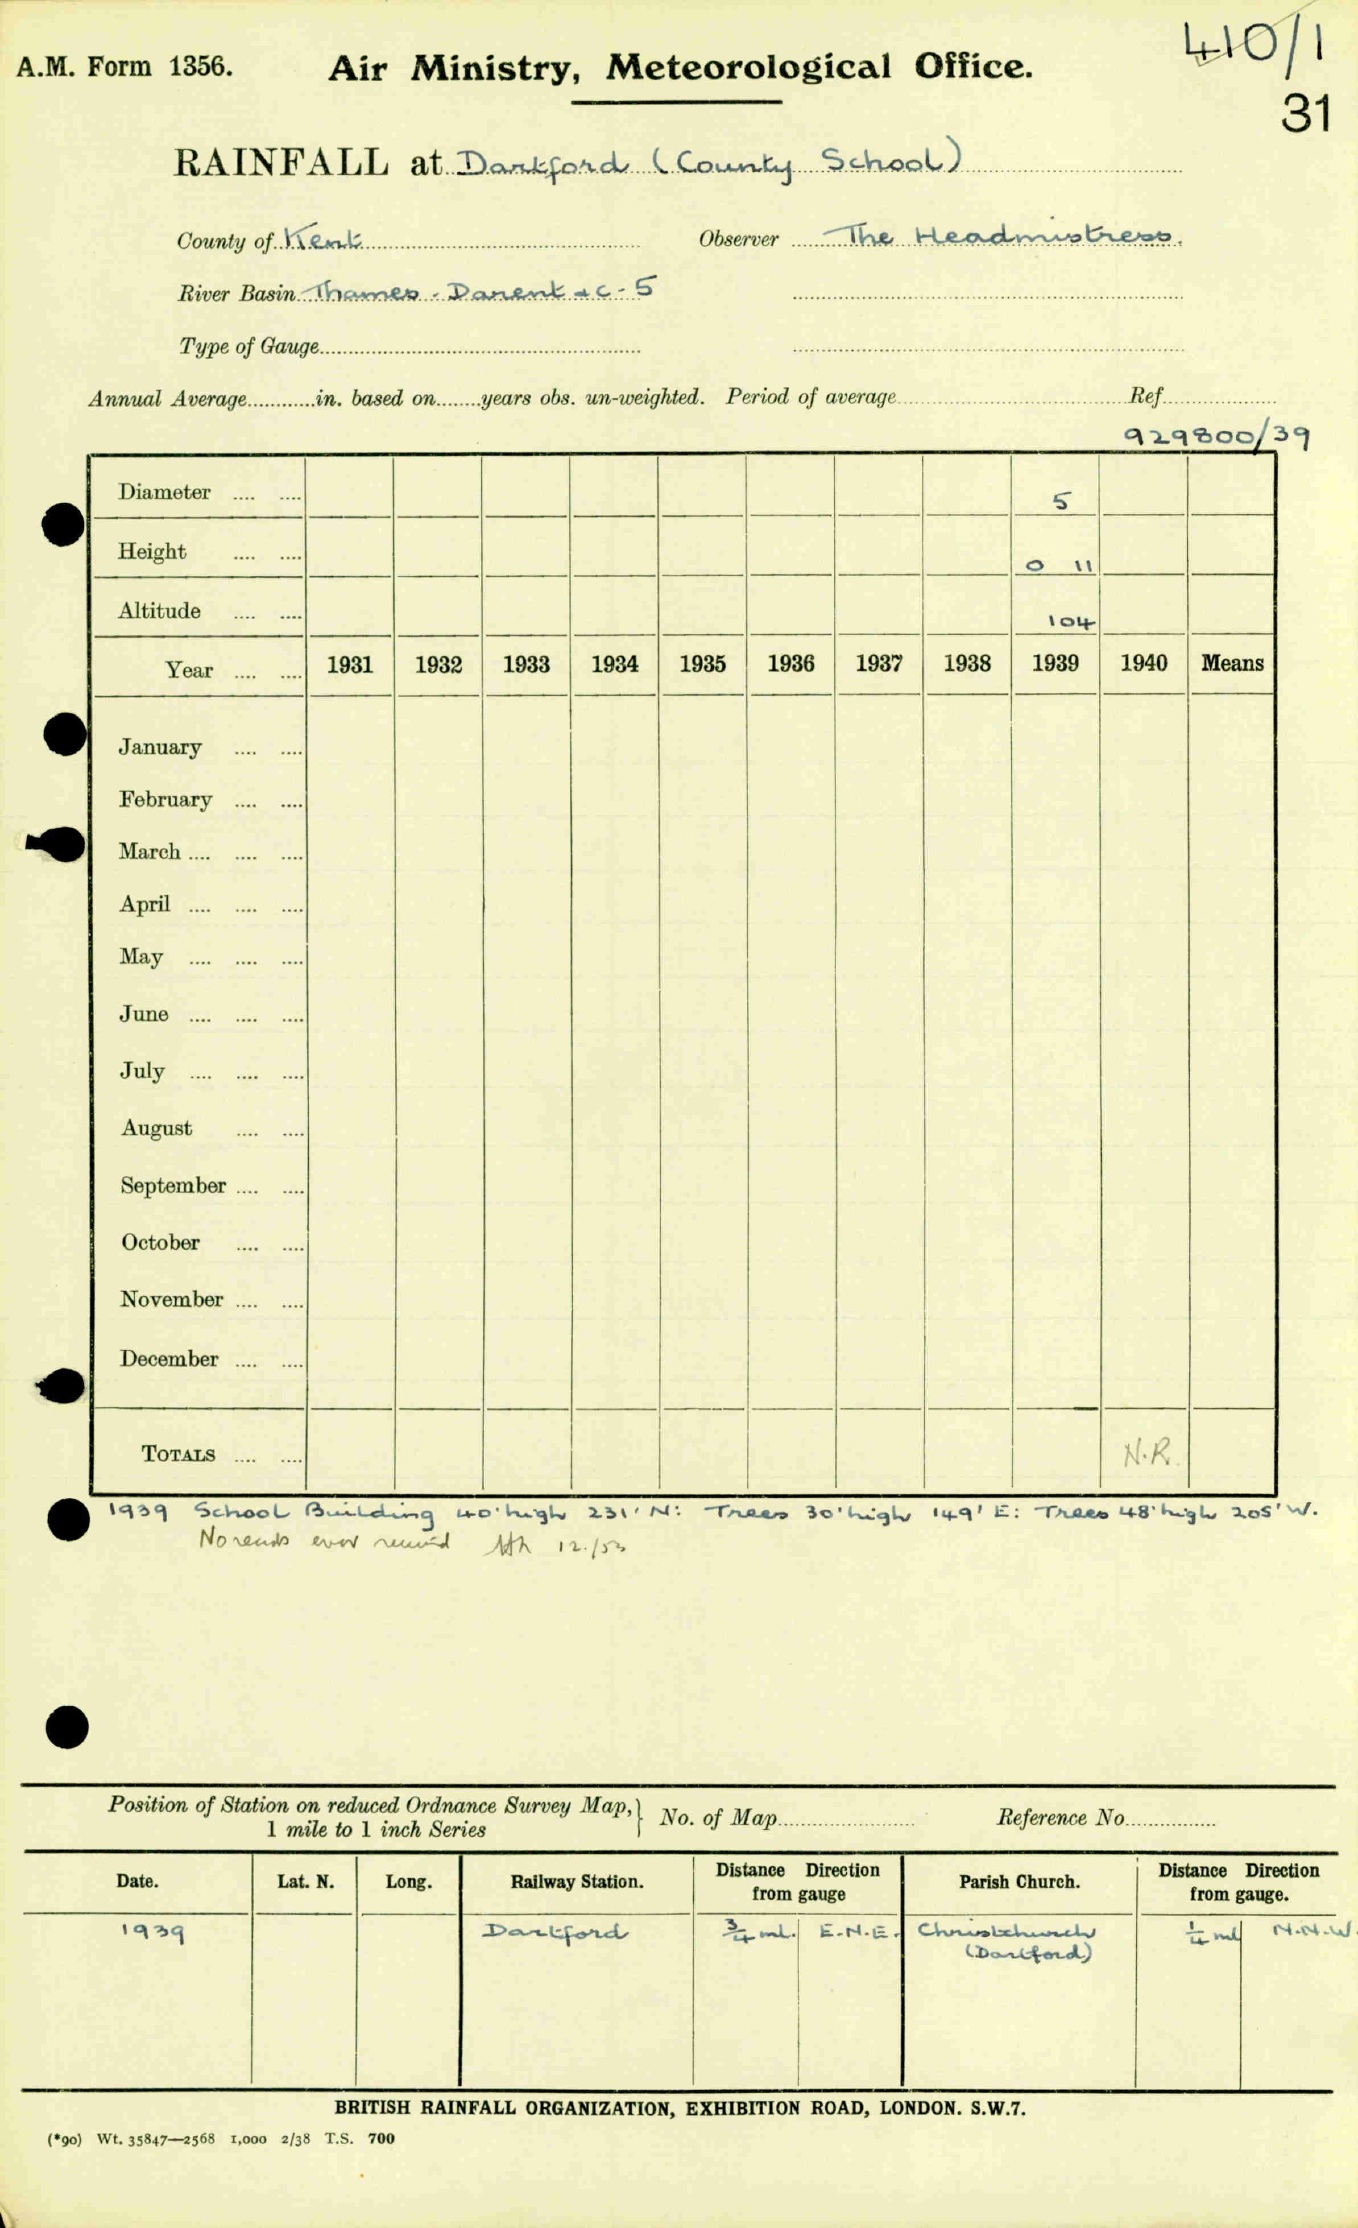 410/1
A.M. Form 1356. Air Ministry, Meteorological Office.
31
RAINFALL at Dartford (County School)
County of Kent Observer The Headmistress.
River Basin Thames - Darent &c - 5
Type of Gauge
Annual Average in. based on years obs. un-weighted. Period of average Ref
929800/39
Diameter .... .... 5
Height .... .... 0 11
Altitude .... .... 104
Year .... .... 1931 1932 1933 1934 1935 1936 1937 1938 1939 1940 Means
January .... ....
February .... ....
March .... .... ....
April .... .... ....
May .... .... ....
June .... .... ....
July .... .... ....
August .... ....
September .... ....
October .... ....
November .... ....
December .... ....
TOTALS .... .... N.R.
1939 School Building 40' high 231' N: Trees 30' high 149' E: Trees 48' high 205' W.
No rends ever received 12./53
Position of Station on reduced Ordnance Survey Map, } No. of Map Reference No.
1 mile to 1 inch Series
Date. Lat. N. Long. Railway Station. Distance Direction from gauge Parish Church. Distance Direction from gauge.
1939 Dartford 3/4 ml. E.N.E. Christchurch 1/4 ml N.N.W.
(Dartford)
BRITISH RAINFALL ORGANIZATION, EXHIBITION ROAD, LONDON. S.W.7.
(*90) Wt. 35847—2568 1,000 2/38 T.S. 700